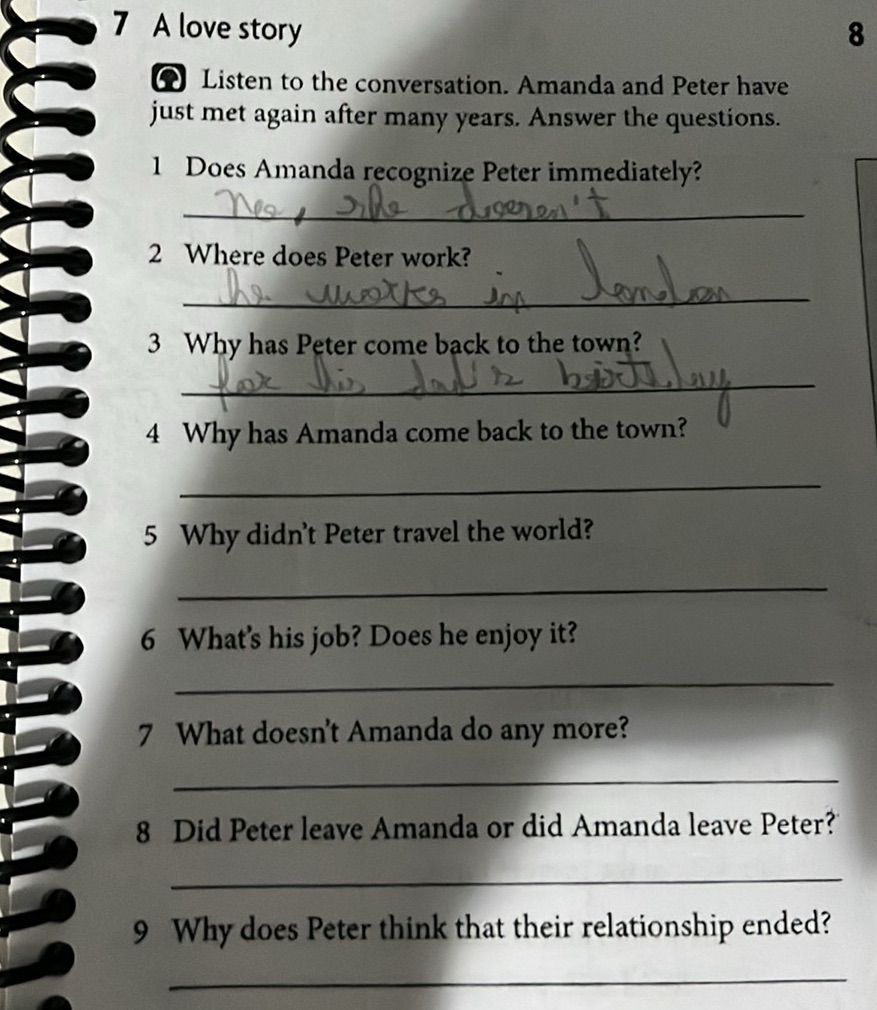 7 A love story
8
Listen to the conversation. Amanda and Peter have
just met again after many years. Answer the questions.
1 Does Amanda recognize Peter immediately?
, she
2 Where does Peter work?
he works in London
3 Why has Peter come back to the town?
for his dad's
4 Why has Amanda come back to the town?
5 Why didn't Peter travel the world?
6 What's his job? Does he enjoy it?
7 What doesn't Amanda do any more?
8 Did Peter leave Amanda or did Amanda leave Peter?
9 Why does Peter think that their relationship ended?